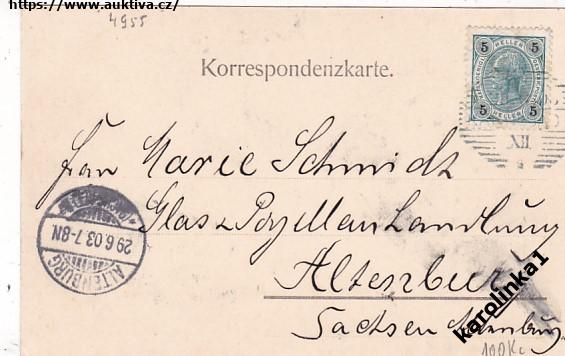 https://www.auktiva.cz/
4955
Korrespondenzkarte.
5 HELLER 5
5 HELLER 5
XII
Frau Marie Schmidt
Glas
Handlung
ALTENBURG
29.6.03.7-8N.
Altenburg
Sachsen
karolinka1
100Kč